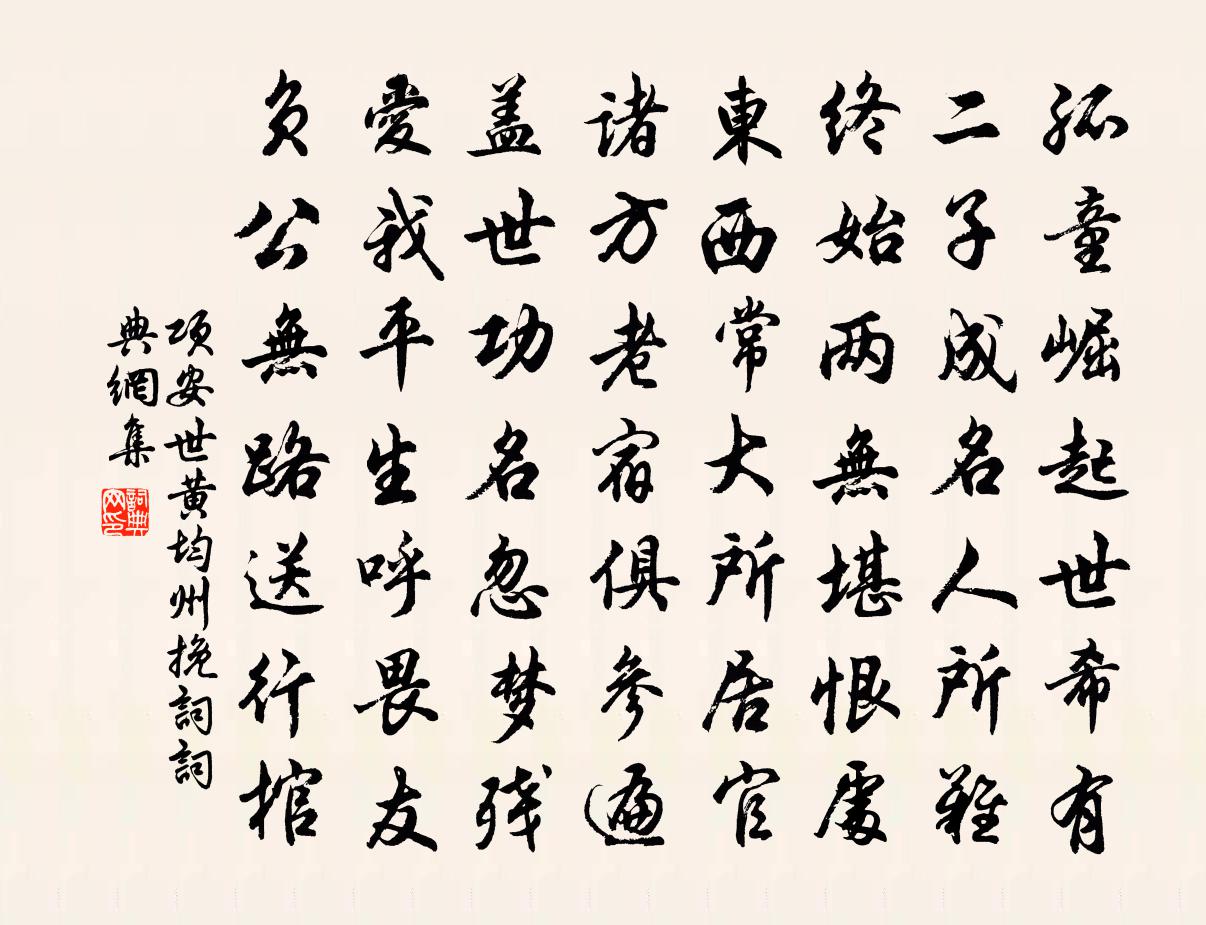 孤童崛起世希有
二子成名人所難
終始两無堪恨處
東西常大所居官
诸方老宿俱參遍
盖世功名忽梦残
愛我平生呼畏友
负公無路送行棺
项安世黄均州挽詞詞
典網集
詞典网印